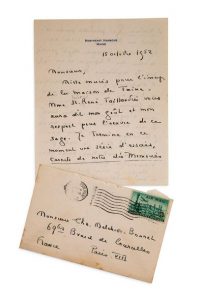 NORTHEAST HARBOR
MAINE
15 octobre 1952
Monsieur,
Mille mercis pour l'image
de la maison de Taine.
Mme St. René Taillandier vous
aura dit mon goût et mon
respect pour l'œuvre de ce
sage. Je termine en ce
moment une série d'essais,
carnets de notes des Mémoires
Monsieur Chs. 
69 Bd de Courcelles
France Paris